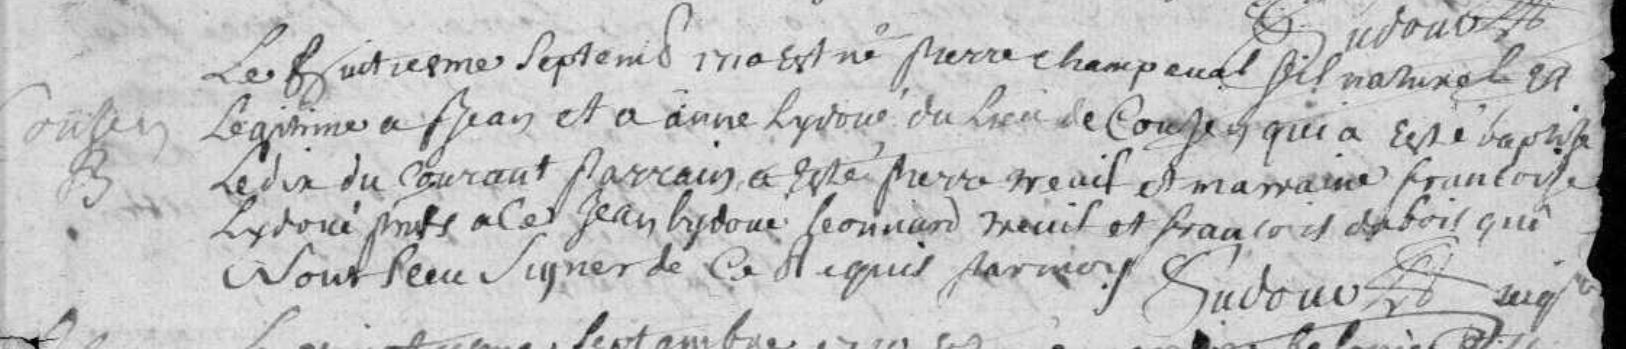 Sudour
Le huitiesme Septemb 1710 Est né pierre champeval fil naturel et
Cousen Legitime a Jean et a anne Lydoué du Lieu de Cousen qui a esté baptise
B Ledix du Courant parrain a esté pierre treuil et marraine francoise
Lydoué pnts a ce Jean Lydoué Leonnard treuil et francois dubois qui
Nont sceu signer de ce Requis par moy Sudour
Septambre